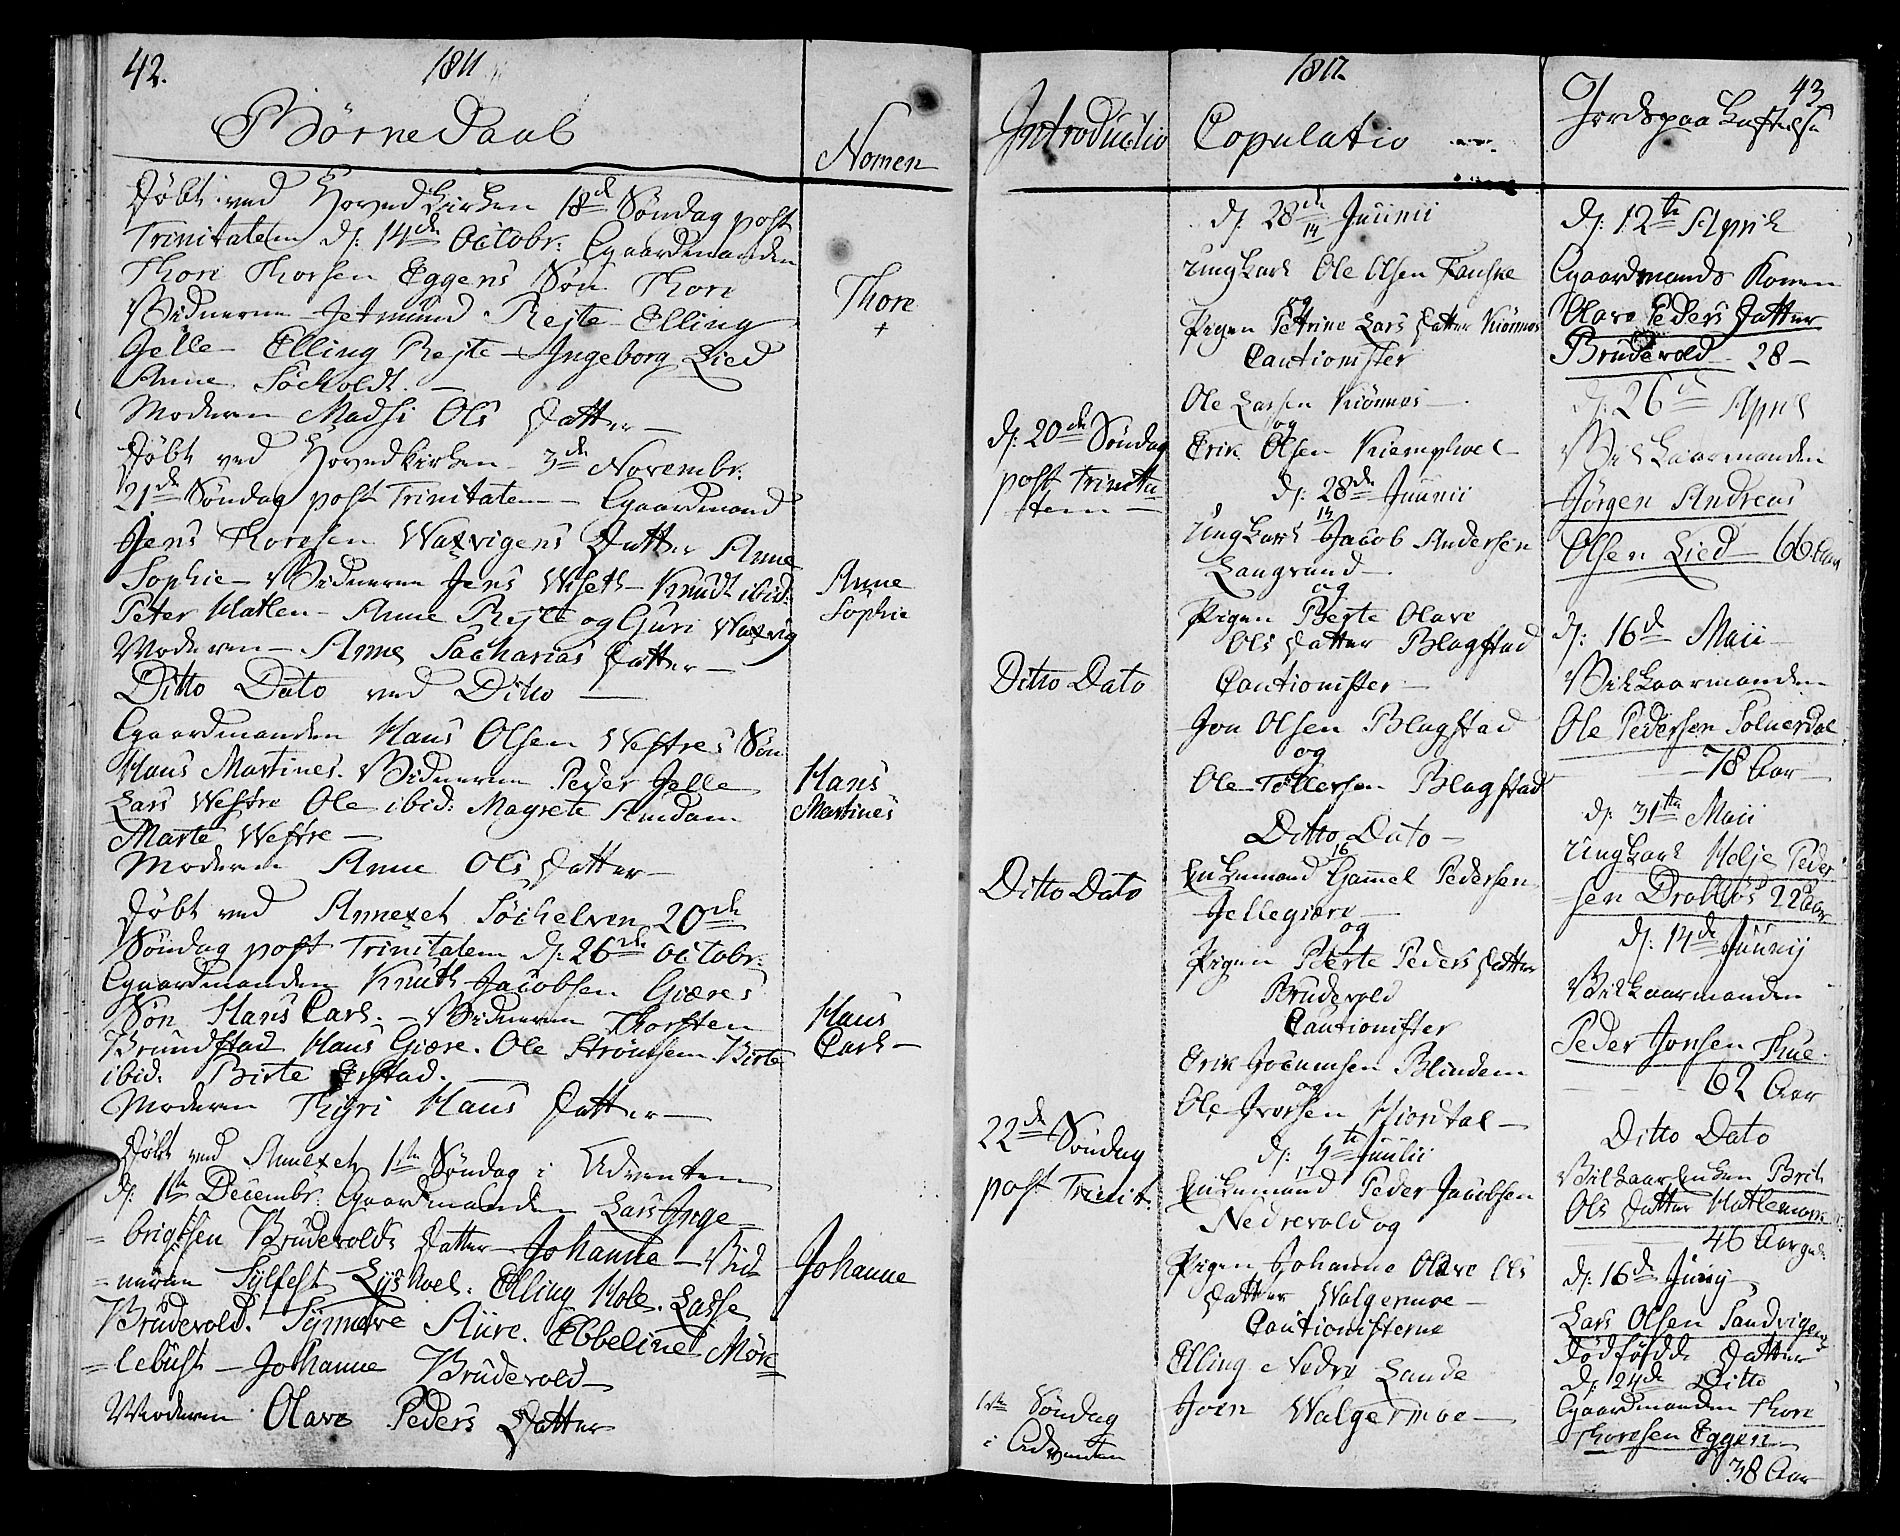 42.
1811
Børne Daab
Nomen
Døbt ved Hovedkirken 18de Søndag post
Trinitatem d: 14de Octobr. Gaardmanden
Thore Thorsen Eggens Søn Thore
Vidnerne Jetmund Rejte Elling
Gjelle Elling Rejte - Ingeborg Lied
Anne Söeholdt. -
Moderen Madsi Ols Datter -
Thore
+
Døbt ved Hovedkirken 3de Novembr.
21de Søndag post Trinitatem - Gaardmand
Jens Thoresen Waxvigens Datter Anne
Sophie - Vidnerne Jens Wiseth - Knudt ibid:
Peter Hatlen - Anne Rejte og Guri Waxvig
Moderen - Anne Sacharias Datter -
Anne
Sophie
Ditto Dato ved Ditto -
Gaardmanden Hans Olsen Westres Søn
Hans Martines. Vidnerne Peder Gjelle
Lars Westre Ole ibid: Magrete
Marte Westre -
Moderen Anne Ols Datter -
Hans
Martines
Døbt ved Annexet Söchelven 20de
Søndag post Trinitatem d: 26de Octobr.
Gaardmanden Knuth Jacobsen Giæres
Søn Hans Carl. - Vidnerne Thorsten
Brundstad Hans Giære. Ole Strömsem Birte
ibid: Birte Erstad. -
Moderen Thigri Hans Datter -
Hans
Carl -
Døbt ved Annexet 1ste Søndag i Adventen
d: 1ste Decembr. Gaardmanden Lars Inge=
=brigtsen Brudevolds Datter Johanne - Vid
=nerne Sylfest Lyshoel. Elling Hole. Lasse
Brudevold. Synneve Aure. Ebbeline Mörk
=lebust - Johanne Brudevold -
Moderen Olave Peders Datter
Johanne
1812.
43
Introductio
Copulatio
Jords paa Kastelse
d: 20de Søndag
post Trinita
tem -
Ditto Dato
Ditto Dato
22de Søndag
post Trinit.
1ste Søndag
i Adventen
d: 28de Junii
14
Ungkarl Ole Olsen Fauske
og
Pigen Petrine Lars Datter Kiörmos
Cautionister
Ole Larsen Kiörmos -
og
Erik Olsen Kiemphoel -
d: 28de Junii
15
Ungkarl Jacob Andersen
Langrund -
og
Pigen Berte Olave
Ols Datter Blagstad
Cautionister -
Jon Olsen Blagstad
og
Ole Tollersen Blagstad
Ditto Dato -
16
Enkemand Gammel Pedersen
Jellegiære -
og
Pigen Berte Peders Datter
Brudevold
Cautionister
Erik Jocumsen Blindem
og
Ole Iversen Hiortal -
d: 4te Julii
17
Enkemand Peder Jacobsen
Nedrevold og
Pigen Johanne Olave Ols
Datter Walgermoe -
Cautionisterne
Elling Nedre Lande
Joen Walgermoe -
d: 12te April
Gaardmands Konen
Olave Peders Datter
Brudevold 28 -
d: 26de April
Vilkaarmanden
Jørgen Andreas
Olsen Lied - 66 Aar
d: 16de Maii
Vilkaarmanden
Ole Pedersen Solnerdal
- 78 Aar -
d: 31te Maii
Ungkarl Helje Peder
sen Drabløs 22 Aar
d: 14de Junij
Vilkaarmanden
Peder Jonsen Thue.
62 Aar
Ditto Dato
Vilkaarenken Brit
Ols Datter Hatlemarck
46 Aar
d: 16de Junij
Lars Olsen Sandvigens
Dødfødde Datter
d: 24de Ditto
Gaardmanden Thore
Thoresen Eggen
38 Aar